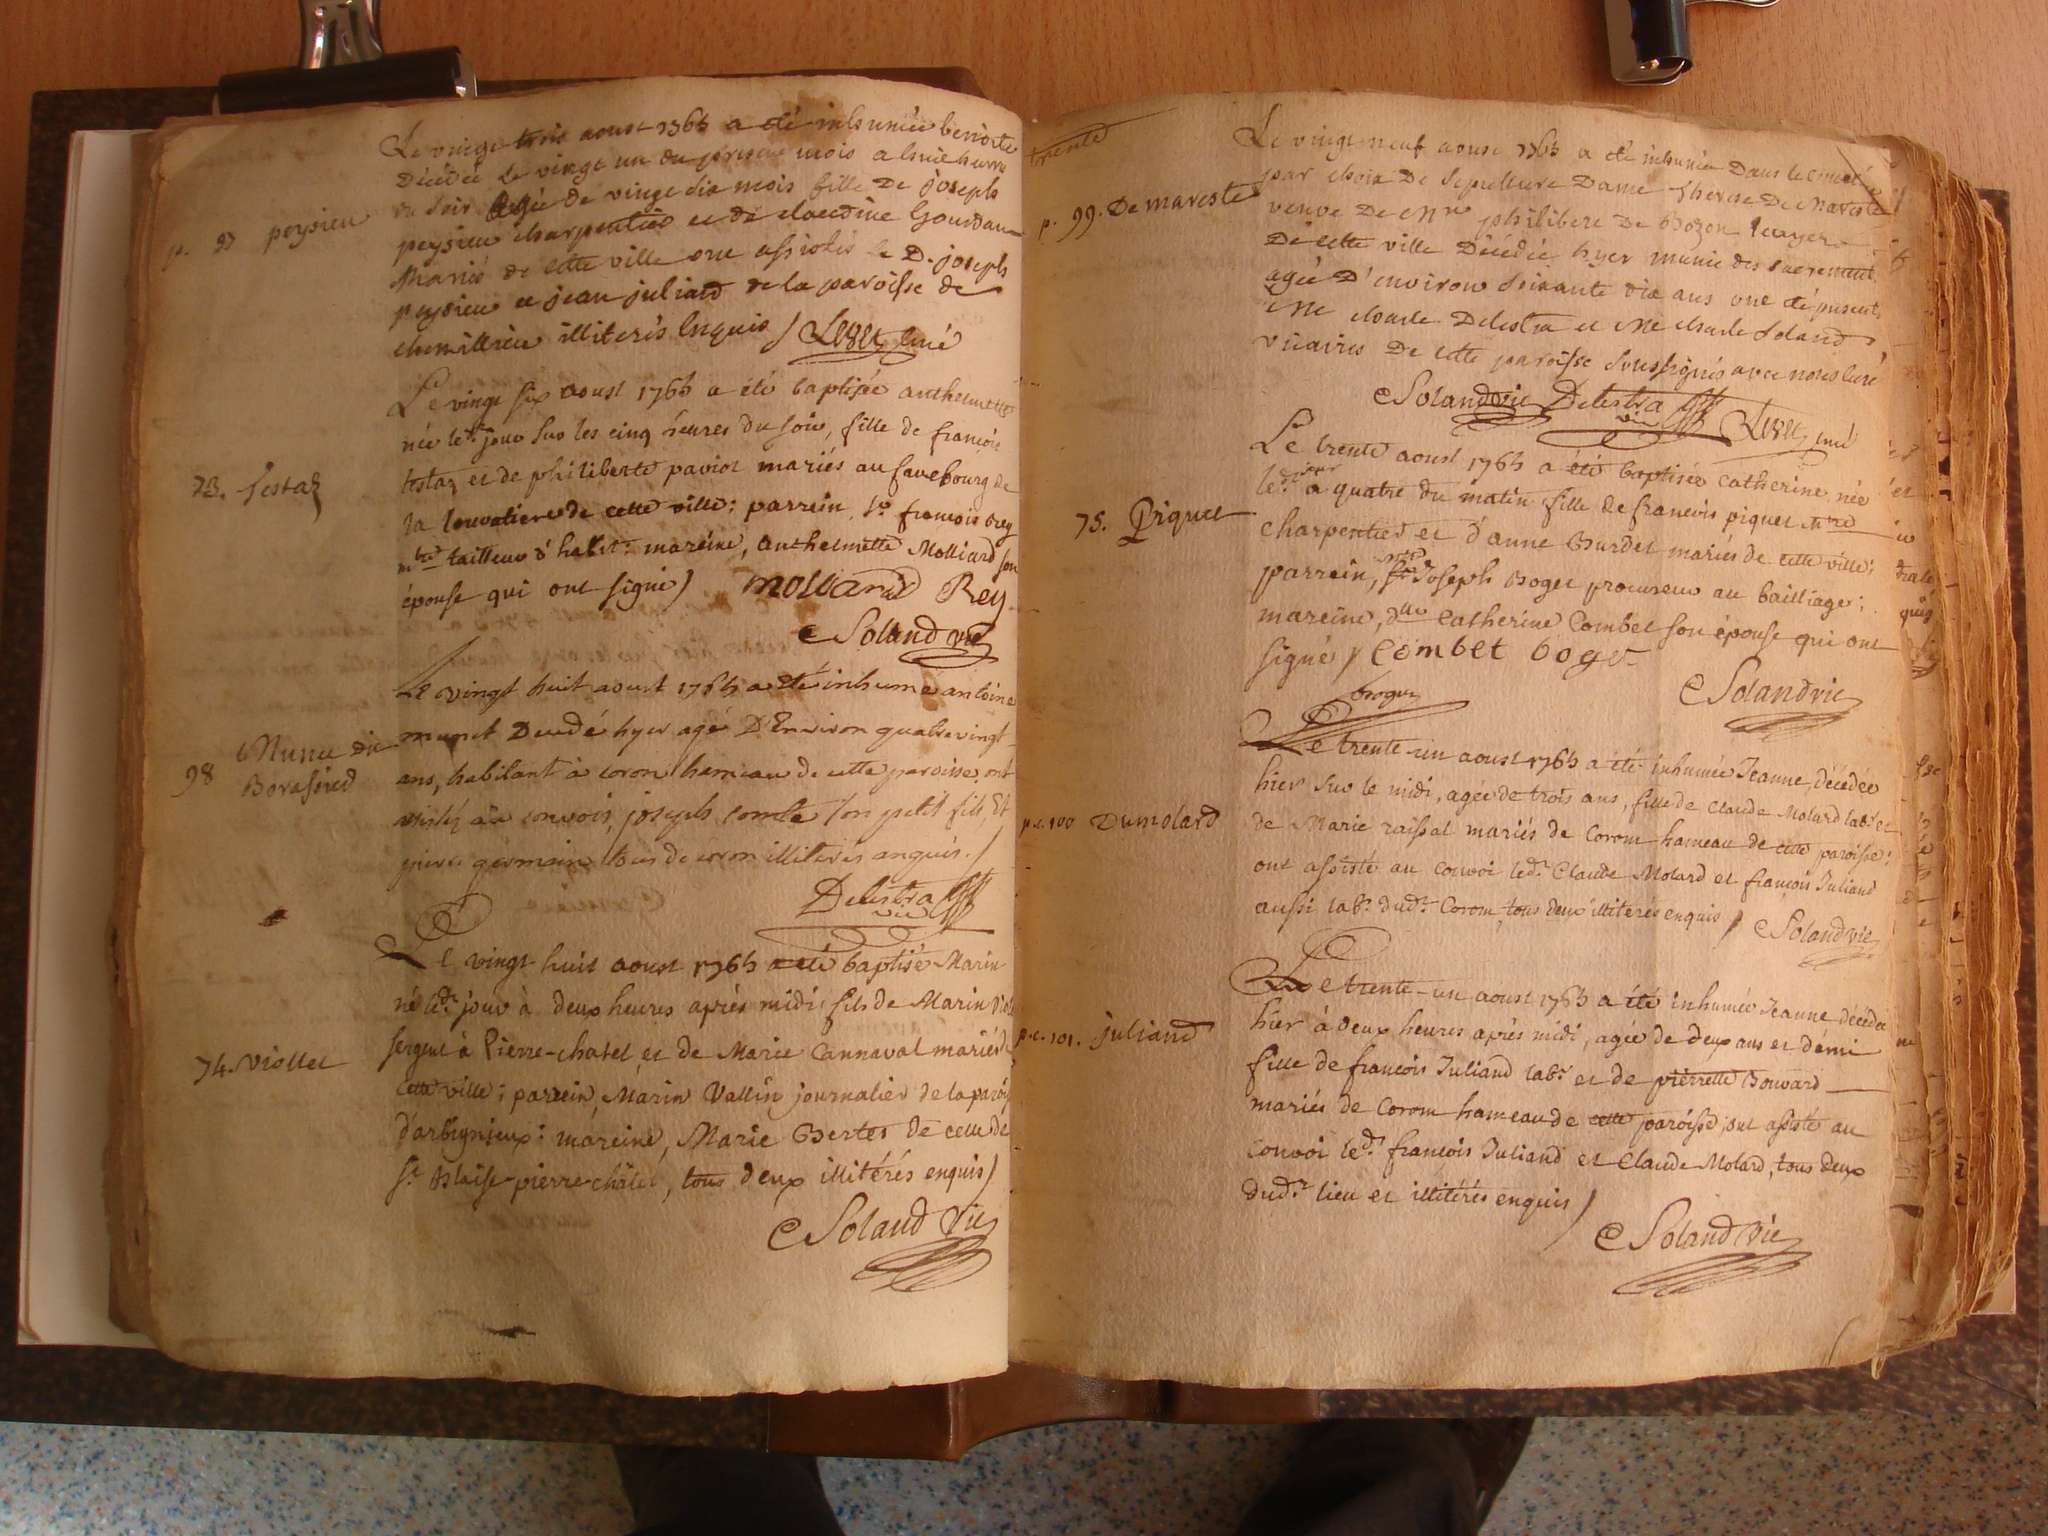 Le vingt trois aoust 1765 a été inhumée benoite
Décédée le vingt un du present mois a huit heures
du soir agée de vingt dix mois fille De joseph
p. 97 peysieu
peysieu charpentier et de claudine Gourdan
Mariés de cette ville ont assistés le D. joseph
peysieu et jean juliand de la paroisse de
chemillieu illiterés Enquis / curé
Le vingt six aoust 1765 a été baptisée anthelmette
née led.t jour sur les cinq heures du soir, fille de françois
73. Testaz
testaz et de philiberte paviot mariés au fauxbourg de
la louvatiere de cette ville; parrein, s.r françois Rey
m.tre tailleur d'habit: mareine, anthelmette Molliard son
épouse qui ont signé / mollard Rey
C Soland vic
Le vingt huit aoust 1765 a été inhumé antoine
98 Munet dit
Borassied
munet Decedé hyer agé D'Environ quatre vingt
ans, habitant à coron hameau de cette paroisse, ont
assistez au convois, joseph comte son petit fils, Et
pierre germain tous de coron illiterés anquis. /
Delestra vic
Le vingt huit aoust 1765 a été baptisé Marin
né led.t jour à deux heures après midi fils de Marin Viol
74. Viollet
sergent à Pierre-chatel et de Marie Cannaval mariés d
cette ville; parrein, Marin Vallin journalier de la paroi
d'arbignieux: mareine, Marie Berter de celle de
S.t Blaise-pierre-châtel, tous deux illitérés enquis /
C Soland Vic
trente
Le vingt neuf aoust 1765 a été inhumée Dans le cimetiere
par choix De sepulture Dame Therese De Mareste
p. 99. De mareste
veuve De Mre philibert De Bozon Ecuyer
De cette ville Décédée hyer munie des sacrements
agée D'environ soixante dix ans ont été presents
Me charle Delestra et Me charle Soland
vicaires De cette paroisse soussignés avec nous curé
C Soland vic Delestra vic curé
Le trente aoust 1765 a été baptisée Catherine née
led.t jour a quatre du matin fille de francois piquet m.tre
75. Piquet
charpentier et d'anne Burdet mariés de cette ville;
parrein, m.e Joseph Boget procureur au bailliage;
mareine, d.lle Catherine Combet son épouse qui ont
signé / Combet boget
boget C Soland vic
Le trente-un aoust 1765 a été inhumée Jeanne, décédée
hier sur le midi, agée de trois ans, fille de Claude Molard lab.r et
p.e. 100 Dumolard
de Marie raissat mariés de Corom hameau de cette paroisse;
ont assisté au convoi led.t Claude Molard et françois Juliand
aussi lab.r dud.t Corom, tous deux illiterés enquis / C Soland vic
Le trente-un aoust 1765 a été inhumée Jeanne décédée
hier à deux heures après midi, agée de deux ans et demi
p.e. 101. juliand
fille de françois Juliand lab.r et de pierrette Bouvard
mariés de Corom hameau de cette paroisse, ont assisté au
convoi led.t françois Juliand et Claude Molard, tous deux
dud.t lieu et illitérés enquis /
C Soland Vic